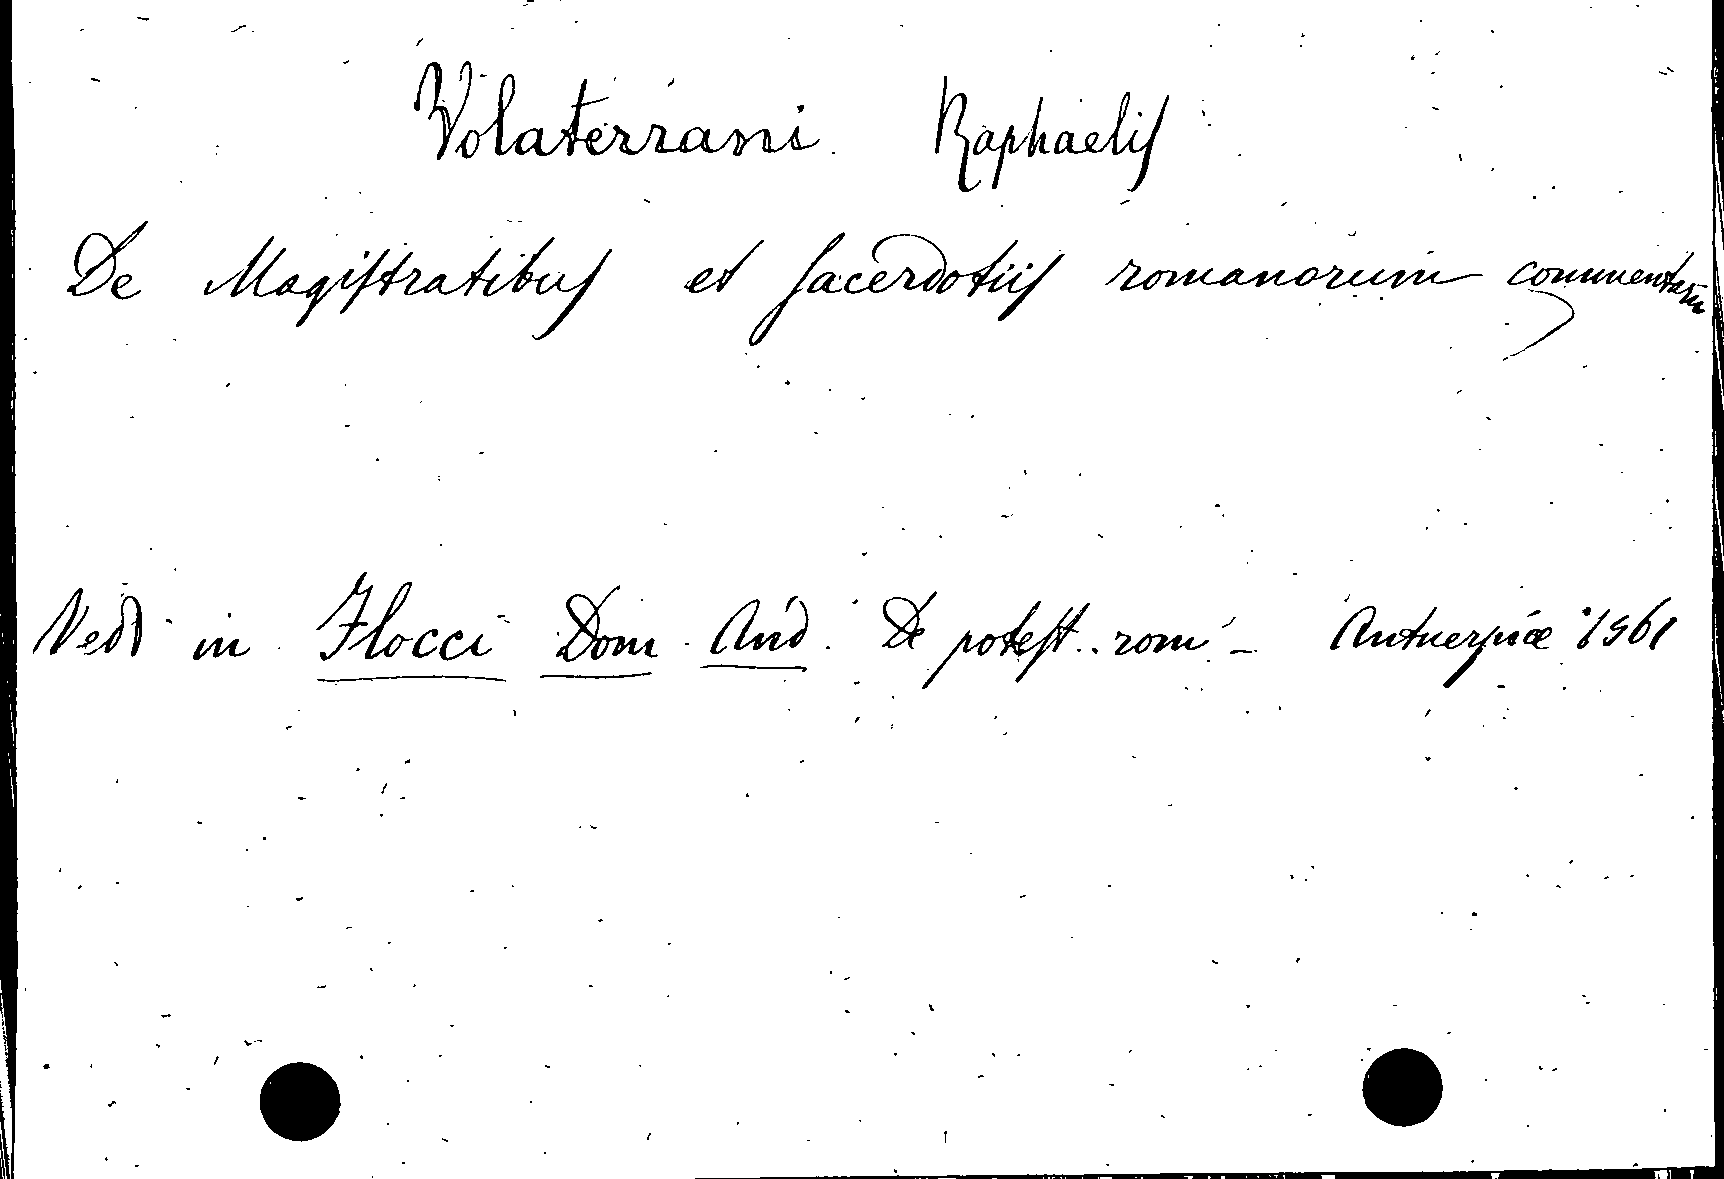 Volaterrani Raphaelis
De Magistratibus et sacerdotiis romanorum commentarii
Vedi in Flocci Dom. And. De potest. rom. - Antuerpiæ 1561